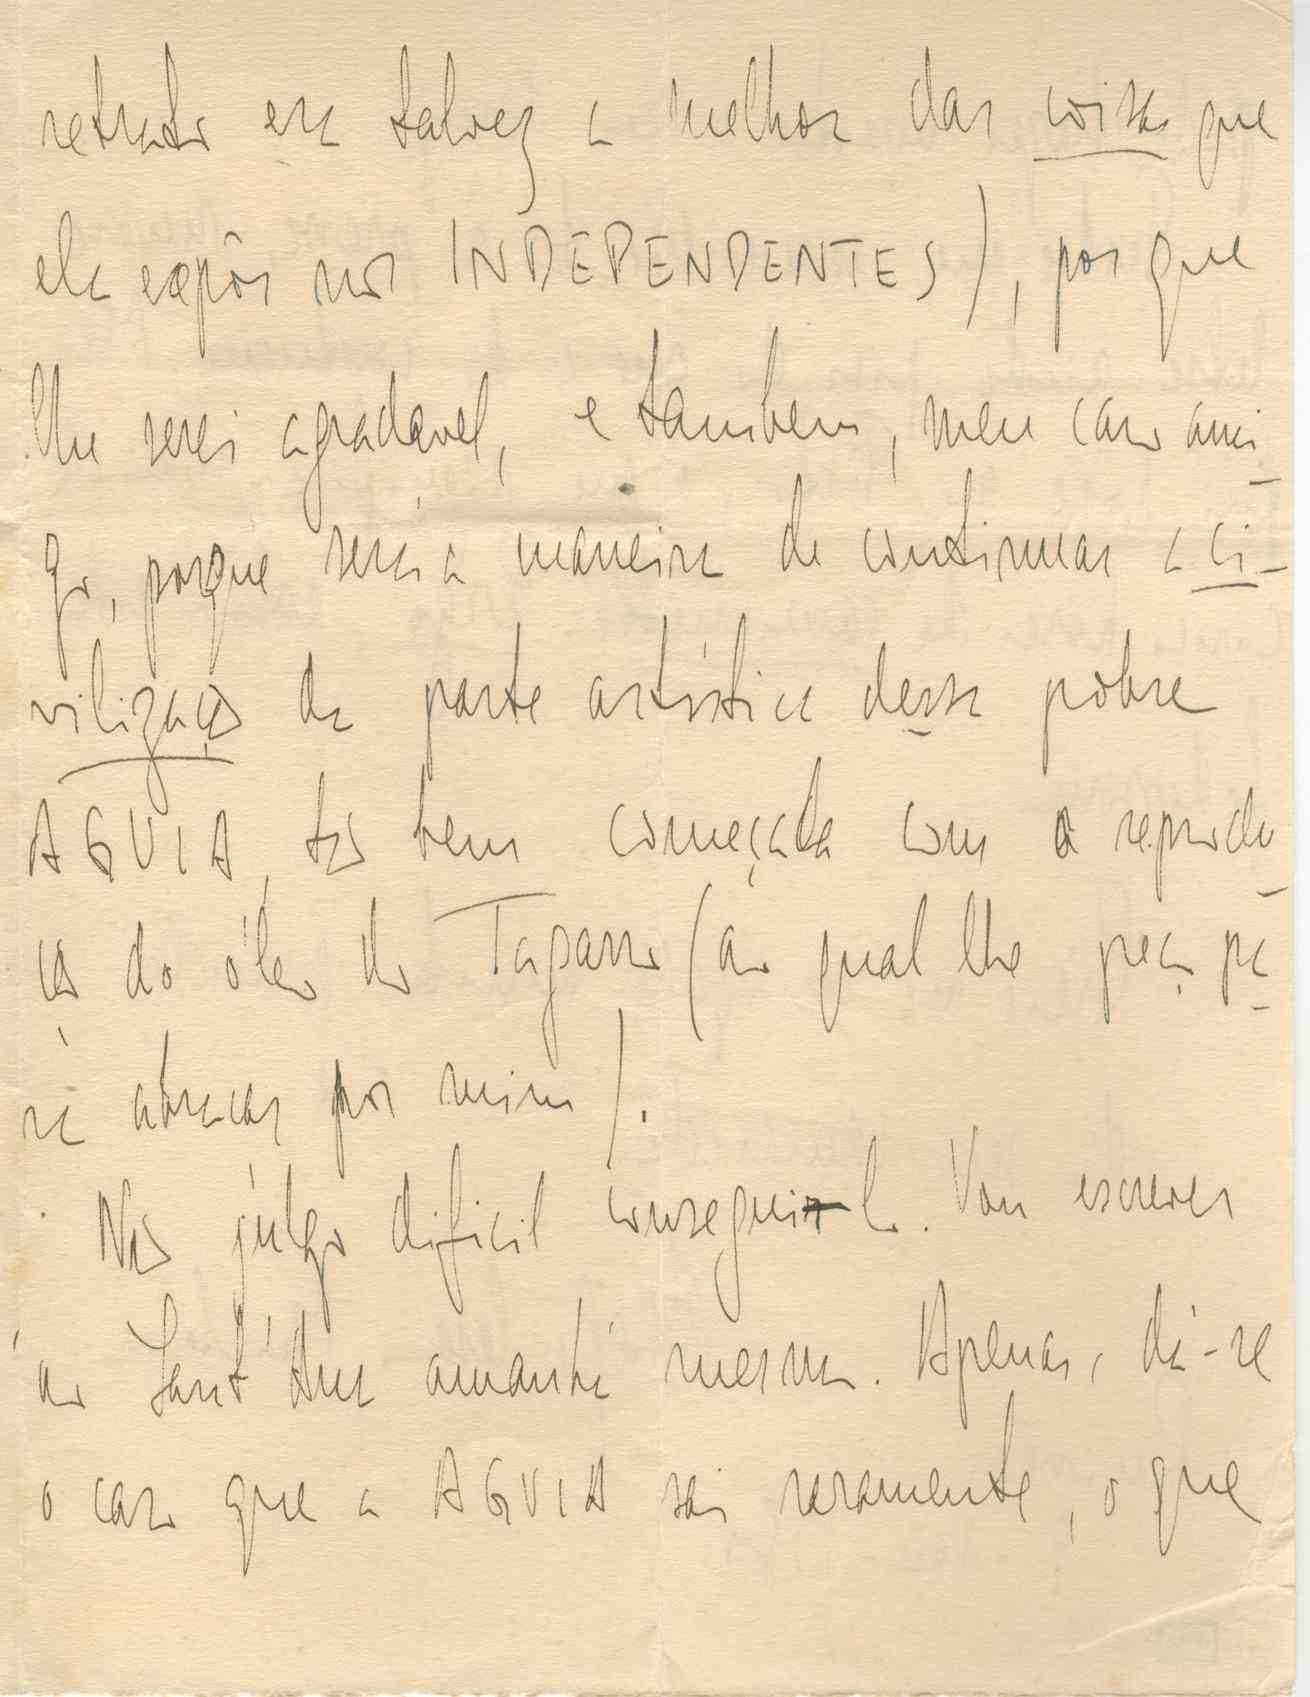 retrato era talvez a melhor das coisas que
ela expôs nos INDEPENDENTES), por que
lhe será agradavel, e tambem, meu caro ami-
go, porque será a maneira de continuar a ci-
vilização da parte artística dessa pobre
AGUIA, tão bem começada com a reprodu-
ção do óleo do Tagarro (ao qual lhe peço pa-
ra abraçar por mim).
Não julgo dificil consegui-lo. Vou escrever
ao Sant'Ana amanhã mesmo. Apenas, dá-se
o caso que a AGUIA sai raramente, o que